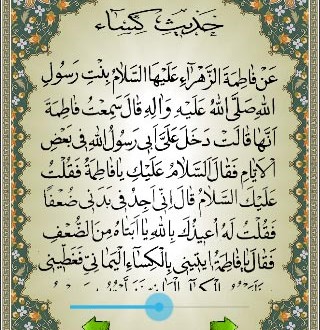 حَدیث کِساء
عَنْ فاطِمَةَ الزَّهْراءِ عَلَيْهَا السَّلامُ بِنْتِ رَسُولِ
اللهِ صَلَّى اللهُ عَلَيْهِ وَآلِهِ قالَ سَمِعْتُ فاطِمَةَ
اَنَّها قالَتْ دَخَلَ عَلَيَّ اَبي رَسُولُ اللهِ في بَعْضِ
الْاَيّامِ فَقالَ السَّلامُ عَلَيْكِ يا فاطِمَةُ فَقُلْتُ
عَلَيْكَ السَّلامُ قالَ اِنّي اَجِدُ في بَدَني ضُعْفًا
فَقُلْتُ لَهُ اُعيذُكَ بِاللهِ يا اَبَتاهُ مِنَ الضُّعْفِ
فَقالَ يا فاطِمَةُ ايتيني بِالْكِساءِ الْيَمانيّ فَغَطّيني